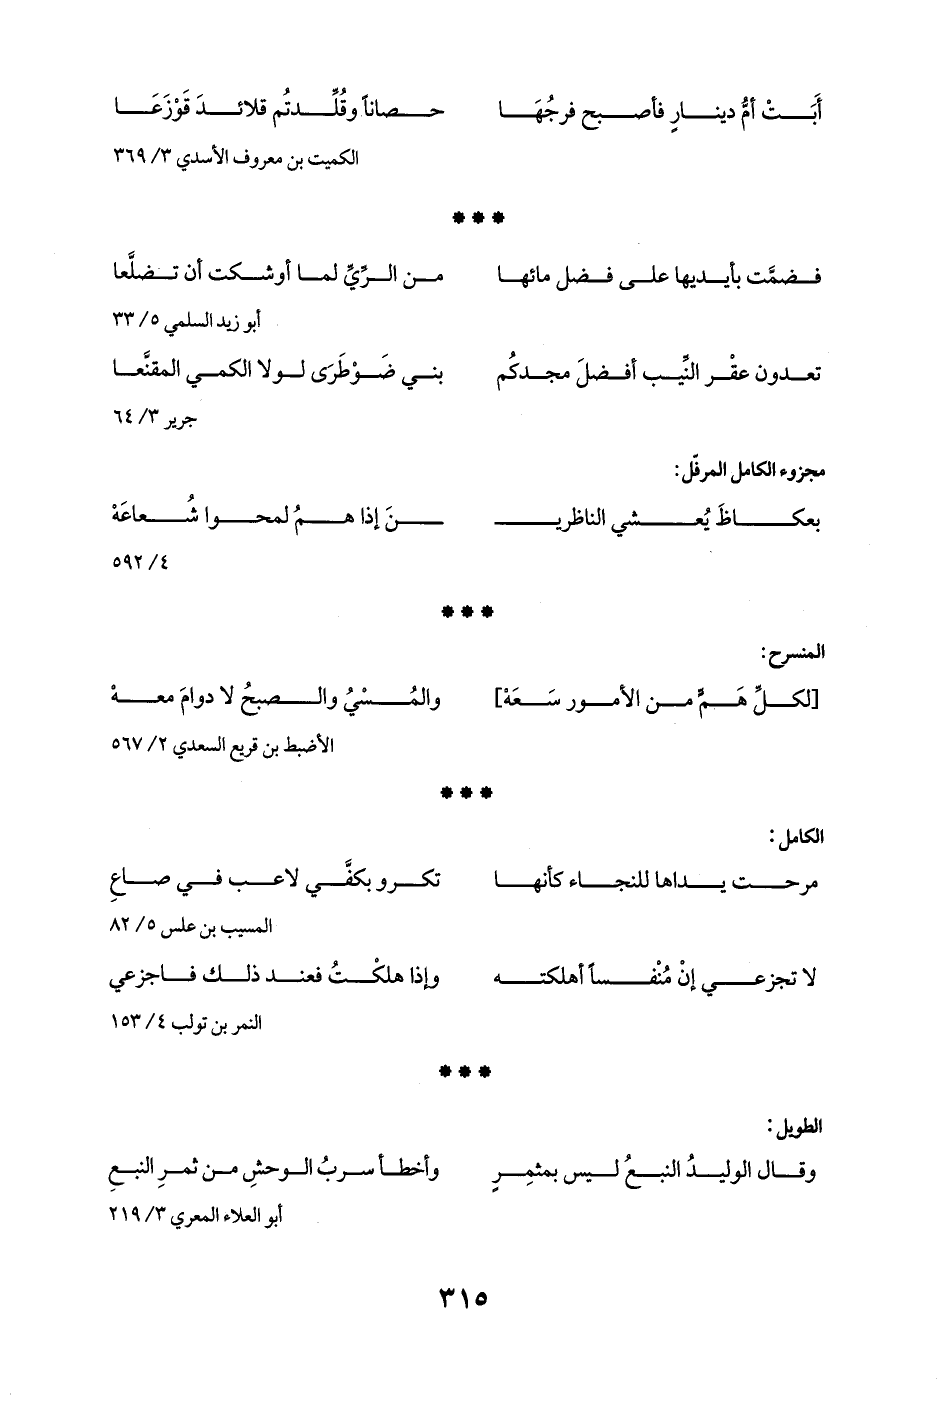 أَبَتْ أمُّ دينارٍ فأصبح فرجُهَا حصاناً وقُلِّدتُم قلائدَ قَوْزَعَا
الكميت بن معروف الأسدي ٣/ ٣٦٩
***
فضمَّت بأيديها على فضل مائها من الرِّيِّ لما أوشكت أن تضلَّعا
أبو زيد السلمي ٥/ ٣٣
تعدون عقْر النِّيب أفضلَ مجدكُم بني ضَوْطَرَى لولا الكمي المقنَّعا
جرير ٣/ ٦٤
مجزوء الكامل المرفّل:
بعكاظَ يُعشي الناظريـ ـنَ إذا همُ لمحوا شُعاعَهْ
٤/ ٥٩٢
***
المنسرح:
[لكلِّ هَمٍّ من الأمور سَعَهْ] والمُسْيُ والصبحُ لا دوامَ معهْ
الأضبط بن قريع السعدي ٢/ ٥٦٧
***
الكامل:
مرحت يداها للنجاء كأنها تكرو بكفَّي لاعب في صاعِ
المسيب بن علس ٥/ ٨٢
لا تجزعي إنْ مُنْفساً أهلكته وإذا هلكْتُ فعند ذلك فاجزعي
النمر بن تولب ٤/ ١٥٣
***
الطويل:
وقال الوليدُ النبعُ ليس بمثمِرٍ وأخطأ سربُ الوحشِ من ثمرِ النبعِ
أبو العلاء المعري ٣/ ٢١٩
٣١٥